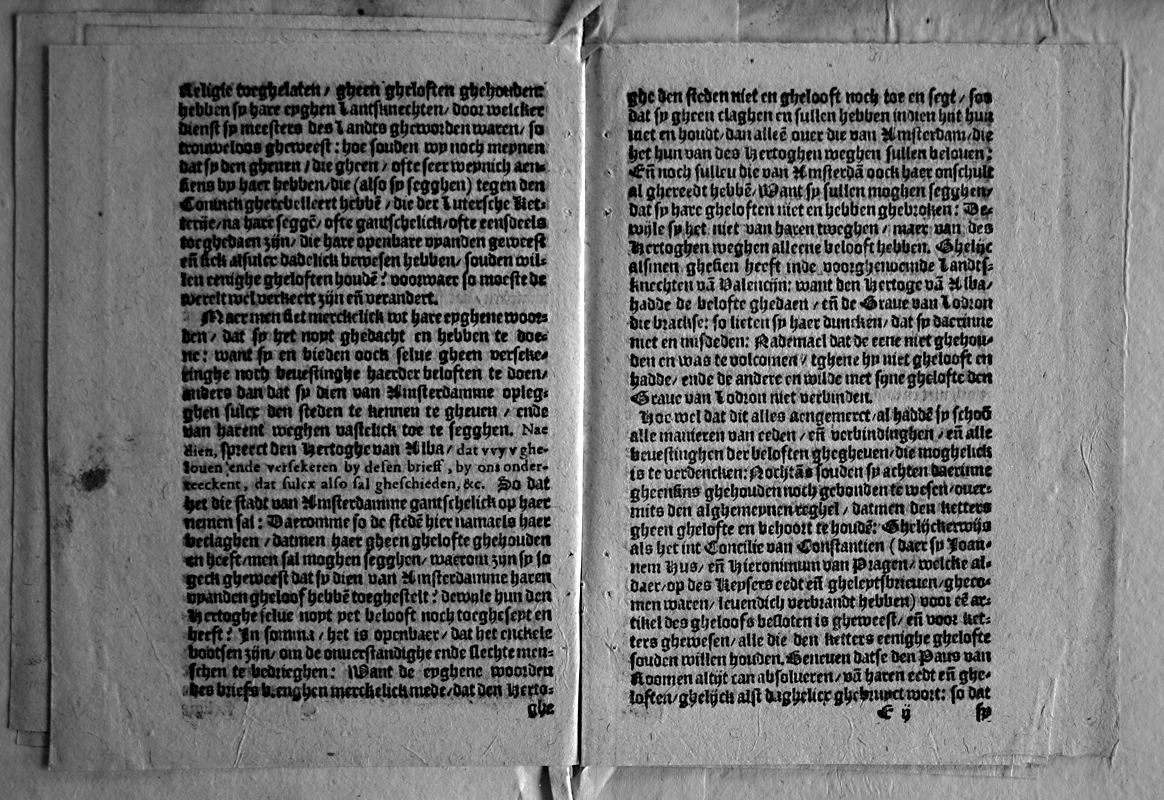 Religie toeghelaten / gheen gheloften ghehouden:
hebben sy hare eyghen Lantsknechten / door welcker
dienst sy meesters des Landts gheworden waren / so
trouweloos gheweest: hoe souden wy noch meynen
dat sy den ghenen / die gheen / ofte seer weynich aen-
siens by haer hebben / die (also sy segghen) tegen den
Coninck gherebelleert hebbē / die der Lutersche Ket-
terije / na hare seggē / ofte gantschelick / ofte eensdeels
toeghedaen zijn / die hare openbare vpanden geweest
eñ sick alsulcx dadelick bewesen hebben / souden wil-
len eenighe gheloften houdē? voorwaer so moeste de
werelt wel verkeert zijn eñ verandert.
Maer men siet merckelick wt hare eyghene woor-
den / dat sy het noyt ghedacht en hebben te doe-
ne: want sy en bieden oock selue gheen verseke-
ringhe noch beuestinghe haerder beloften te doen /
anders dan dat sy dien van Amsterdamme opleg-
ghen sulcx den steden te kennen te gheuen / ende
van harent weghen vastelick toe te segghen. Nae
dien, spreect den Hertoghe van Alba / dat vvy v ghe-
louen ende versekeren by desen brieff, by ons onder-
teeckent, dat sulcx also sal gheschieden, &c. So dat
het die stadt van Amsterdamme gantschelick op haer
nemen sal: Daeromme so de stedē hier namaels haer
beclaghen / datmen haer gheen ghelofte ghehouden
en heeft / men sal moghen segghen / waerom zijn sy so
geck gheweest dat sy dien van Amsterdamme haren
vpanden gheloof hebbē toeghestelt? dewyle hun den
Hertoghe selue noyt yet belooft noch toegheseyt en
heeft? In somma / het is openbaer / dat het enckele
bootsen zijn / om de onuerstandighe ende slechte men-
schen te bedrieghen: Want de eyghene woorden
des briefs brenghen merckelick mede / dat den Herto-
ghe
ghe den steden niet en ghelooft noch toe en segt / son
dat sy gheen claghen en sullen hebben indien hijt hun
niet en houdt / dan alleē ouer die van Amsterdam / die
het hun van des Hertoghen weghen sullen belouen:
Eñ noch sullen die van Amsterdā oock haer onschult
al ghereedt hebbē / Want sy sullen moghen segghen /
dat sy hare gheloften niet en hebben ghebroken: De-
wijle sy het niet van haren tweghen / maer van des
Hertoghen weghen alleene belooft hebben. Ghelijc
alsmen ghesien heeft inde voorghenoemde Landts-
knechten vā Valencijn: want den Hertoge vā Alba /
hadde de belofte ghedaen / eñ de Graue van Lodron
die brackse: so lieten sy haer duncken / dat sy daerinne
niet en misdeden: Nademael dat de eene niet ghehou-
den en was te volcomen / tghene hy niet ghelooft en
hadde / ende de andere en wilde met sijne gelofte den
Graue van Lodron niet verbinden.
Hoe wel dat dit alles aengemerct / al haddē sy schoō
alle manieren van eeden / eñ verbindinghen / eñ alle
beuestinghen der beloften ghegheuen / die moghelick
is te verdencken: Nochtās souden sy achten daerinne
gheensins ghehouden noch gebonden te wesen / ouer-
mits den alghemeynen reghel / datmen den ketters
gheen gelofte en behoort te houdē: Ghelijckerwijs
als het int Concilie van Constantien (daer sy Joan-
nem Hus / eñ Hieronimum van Pragen / welcke al-
daer / op des Keysers eedt eñ gheleytsbrieuen / gheco-
men waren / leuendich verbrandt hebben) voor eē ar-
tikel des gheloofs besloten is gheweest / eñ voor ket-
ters ghewesen / alle die den ketters eenighe ghelofte
souden willen houden. Beneuen datse den Paus van
Roomen altijt can absolueren / vā haren eedt eñ ghe-
loften / ghelijck alst daghelicx ghebruyct wort: so dat
E ij sy